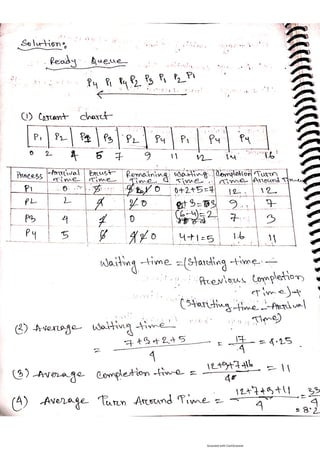 Solution:
Ready Queue
P4 P1 P4 P2 P3 P1 P2 P1
(1) Gantt chart
P1 P2 P1 P3 P2 P4 P1 P4 P4
0 2 4 5 7 9 11 12 14 16
Process Arrival Time Burst Time Remaining Time Waiting Time Completion Time Turn Around Time
P1 0 0 0+2+5=7 12 12
P2 2 0 3=3 9 7
P3 4 0 (6-4)=2 7 3
P4 5 0 4+1=5 16 11
Waiting time = (Starting time -
Previous Completion
Time) +
(Starting time - Arrival
Time)
(2) Average Waiting time
= 7+3+2+5 / 4 = 17 / 4 = 4.25
(3) Average Completion time = 12+9+7+16 / 4 = 11
(4) Average Turn Around Time = 12+7+3+11 / 4 = 33 / 4
= 8.2
Scanned with CamScanner